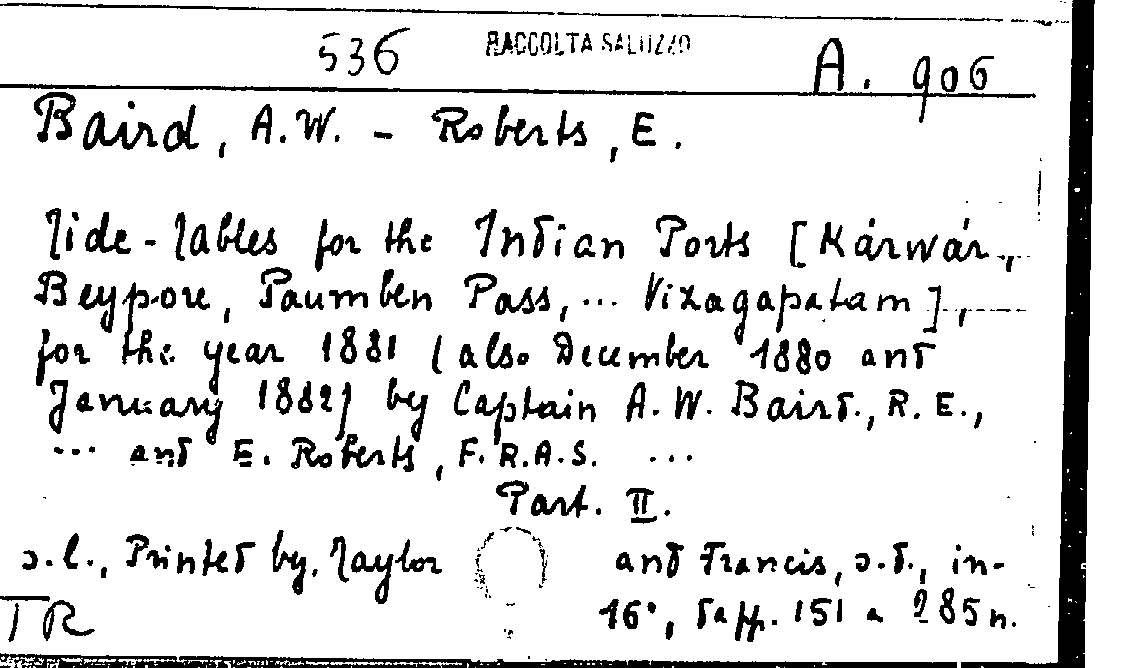 536 RACCOLTA SALUZZO A. 906
Baird, A.W. - Roberts, E.
Tide-Tables for the Indian Ports [Kárwár,
Beypore, Paumben Pass, ... Vizagapatam],
for the year 1881 (also December 1880 and
January 1882) by Captain A.W. Baird, R.E.,
... and E. Roberts, F.R.A.S. ...
Part. II.
s.l., Printed by Taylor and Francis, s.d., in-
16°, da pp. 151 a 285 n.
TR